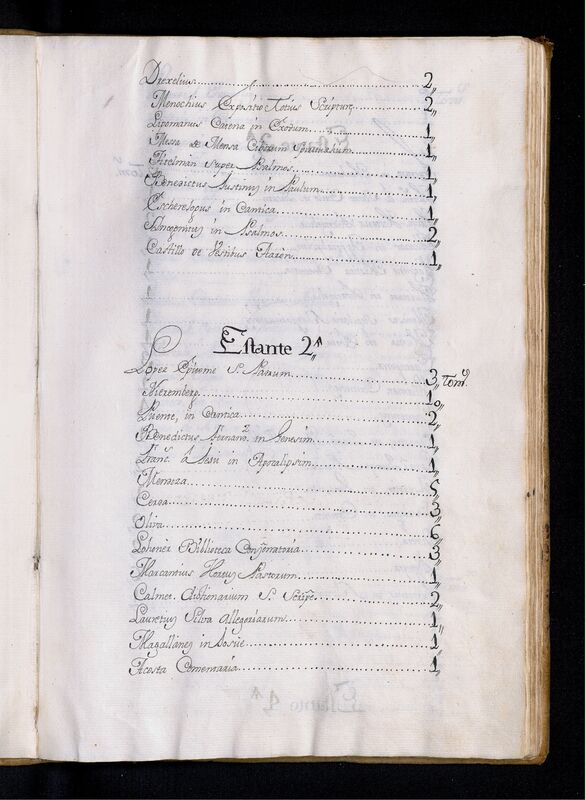 Drexelius 2,,
Menochius Expositio Totius Scripture 2,,
Lipomanus Catena in Exodum 1,,
Messa de Mensa Ciborum Spiritualium 1,,
Titelman Super Psalmos 1,,
Benedictus Justiniꝰ in Paulum 1,,
in Cantica 1,,
in Psalmos 2,,
Castillo de Vestibus Aaron 1,,
Estante 2ª,,
Lopez Epitome S. Patrum 3,, Tomˢ
Nieremberg 10,,
Puente, in Cantica 2,,
Benedictus Fernandᶻ in Genesim 1,,
Franc. â Jesu in Apocalipsim 1,,
Mendoza 5,,
Cerda 3,,
Oliva 6,,
Lohener Biblioteca Conçionatoria 3,,
Marcantius Hortus Pastorum 1,,
Calmet. dictionarium S. Script. 2,,
Lauretus Silva Allegoriarum 1,,
Magallanes in Josue 1,,
Acosta Comentaria 1,,